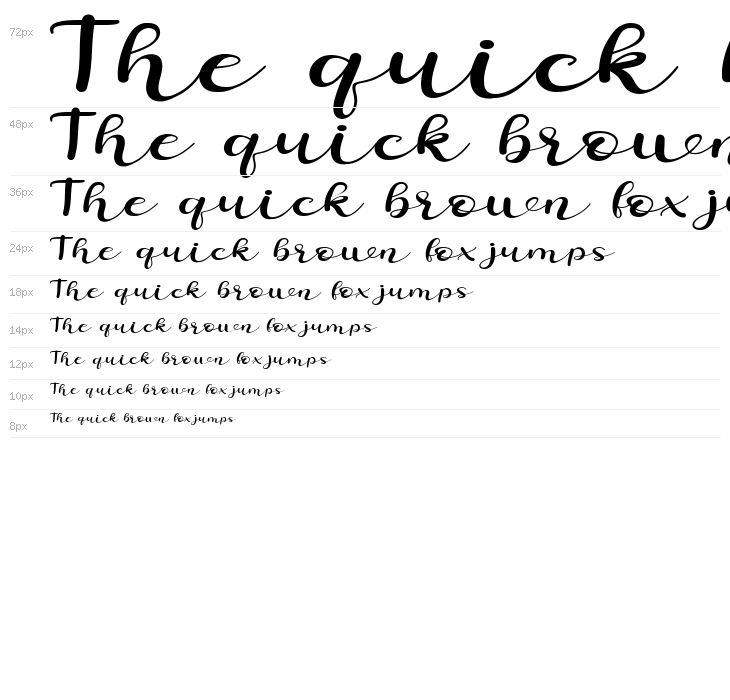 72px The quick
48px The quick brown
36px The quick brown fox ju
24px The quick brown fox jumps
18px The quick brown fox jumps
14px The quick brown fox jumps
12px The quick brown fox jumps
10px The quick brown fox jumps
8px The quick brown fox jumps